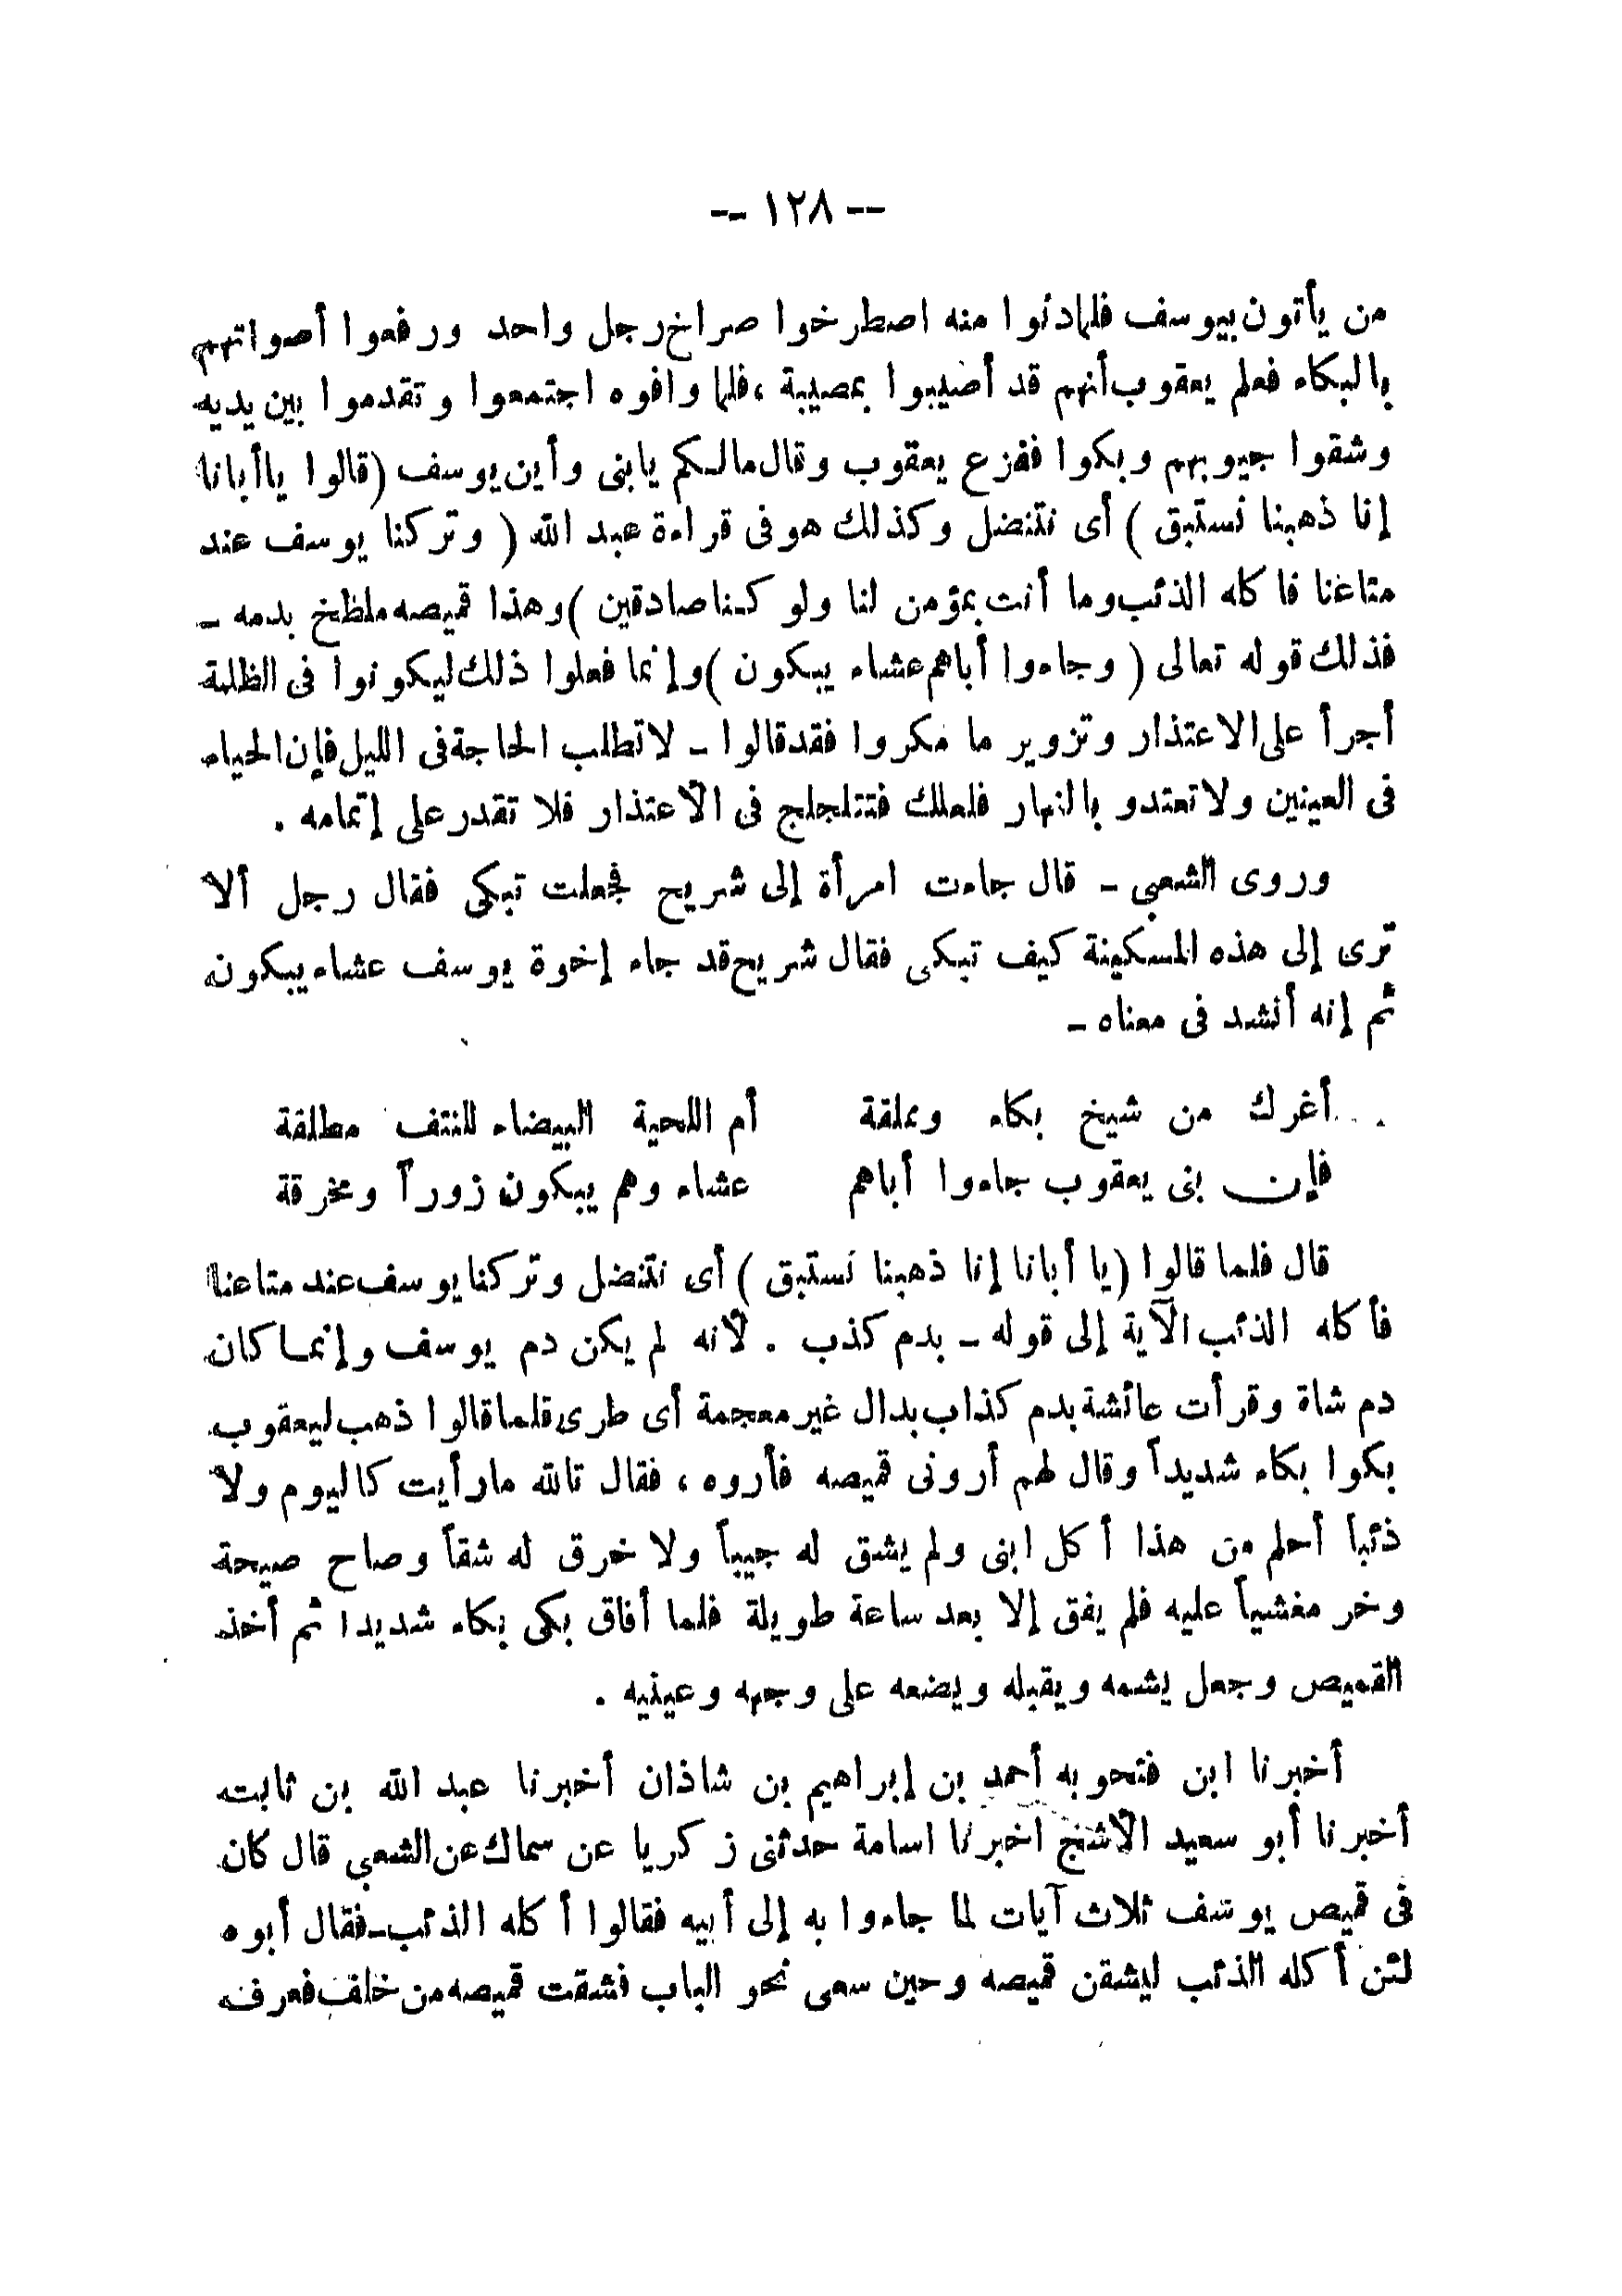 -- ١٢٨ --
من يأتون بيوسف فلما دنوا منه اصطرخوا صراخ رجل واحد ورفعوا أصواتهم
بالبكاء فعلم يعقوب أنهم قد أصيبوا بمصيبة ، فلما وافوه اجتمعوا وتقدموا بين يديه
وشقوا جيوبهم وبكوا ففزع يعقوب وقال مالكم يابنى وأين يوسف (قالوا ياأبانا
إنا ذهبنا نستبق ) أى نتنضل وكذلك هو فى قراءة عبد الله ( وتركنا يوسف عند
متاعنا فاكله الذئب وما أنت بمؤمن لنا ولو كنا صادقين )وهذا قميصه ملطخ بدمه –
فذلك قوله تعالى ( وجاءوا أباهم عشاء يبكون )وإنما فعلوا ذلك ليكونوا فى الظلمة
أجرأ على الاعتذار وتزوير ما مكروا فقد قالوا – لا تطلب الحاجة فى الليل فإن الحياء
فى العينين ولا تعتدو بالنهار فلعلك فتتلجلج فى الاعتذار فلا تقدر على إتمامه .
وروى الشعبي – قال جاءت امرأة إلى شريح فجعلت تبكى فقال رجل ألا
ترى إلى هذه المسكينة كيف تبكى فقال شريح قد جاء إخوة يوسف عشاء يبكون
ثم إنه أنشد فى معناه –
أغرك من شيخ بكاء وعلقة أم اللحية البيضاء للنتف مطلقة
فإن بنى يعقوب جاءوا أباهم عشاء وهم يبكون زوراً ومخرقة
قال فلما قالوا (يا أبانا إنا ذهبنا نستبق ) أى نتنضل وتركنا يوسف عند متاعنا
فأكله الذئب الآية إلى قوله – بدم كذب . لأنه لم يكن دم يوسف وإنما كان
دم شاة وقرأت عائشة بدم كذاب بدال غير معجمة أى طرى قلما قالوا ذهب ليعقوب
بكوا بكاء شديداً وقال لهم أرونى قميصه فأروه ، فقال تالله مارأيت كاليوم ولا
ذئباً أحلم من هذا أكل ابنى ولم يشق له جيباً ولا خرق له شقاً وصاح صيحة
وخر مغشياً عليه فلم يفق إلا بعد ساعة طويلة فلما أفاق بكى بكاء شديدا ثم أخذ
القميص وجعل يشمه ويقبله ويضعه على وجهه وعينيه .
أخبرنا ابن فتحويه أحمد بن إبراهيم بن شاذان أخبرنا عبد الله بن ثابت
أخبرنا أبو سعيد الأشج اخبرنا اسامة حدثنى زكريا عن سماك عن الشعبي قال كان
فى قميص يوسف ثلاث آيات لما جاءوا به إلى أبيه فقالوا أكله الذئب–فقال أبوه
لئن أكله الذئب ليشقن قميصه وحين سعى نحو الباب فشقت قميصه من خلف فعرف